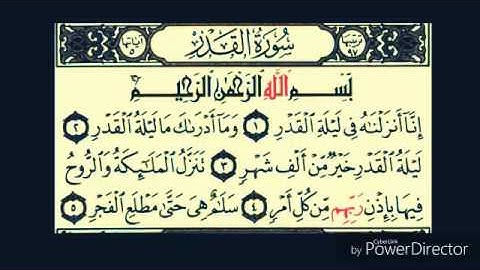 ترتيبها ٩٧ سُورَةُ الْقَدْرِ آياتها ٥
بِسْمِ اللَّهِ الرَّحْمَٰنِ الرَّحِيمِ
إِنَّا أَنزَلْنَاهُ فِي لَيْلَةِ الْقَدْرِ ١ وَمَا أَدْرَاكَ مَا لَيْلَةُ الْقَدْرِ ٢
لَيْلَةُ الْقَدْرِ خَيْرٌ مِّنْ أَلْفِ شَهْرٍ ٣ تَنَزَّلُ الْمَلَائِكَةُ وَالرُّوحُ
فِيهَا بِإِذْنِ رَبِّهِم مِّن كُلِّ أَمْرٍ ٤ سَلَامٌ هِيَ حَتَّىٰ مَطْلَعِ الْفَجْرِ ٥
CyberLink
by PowerDirector